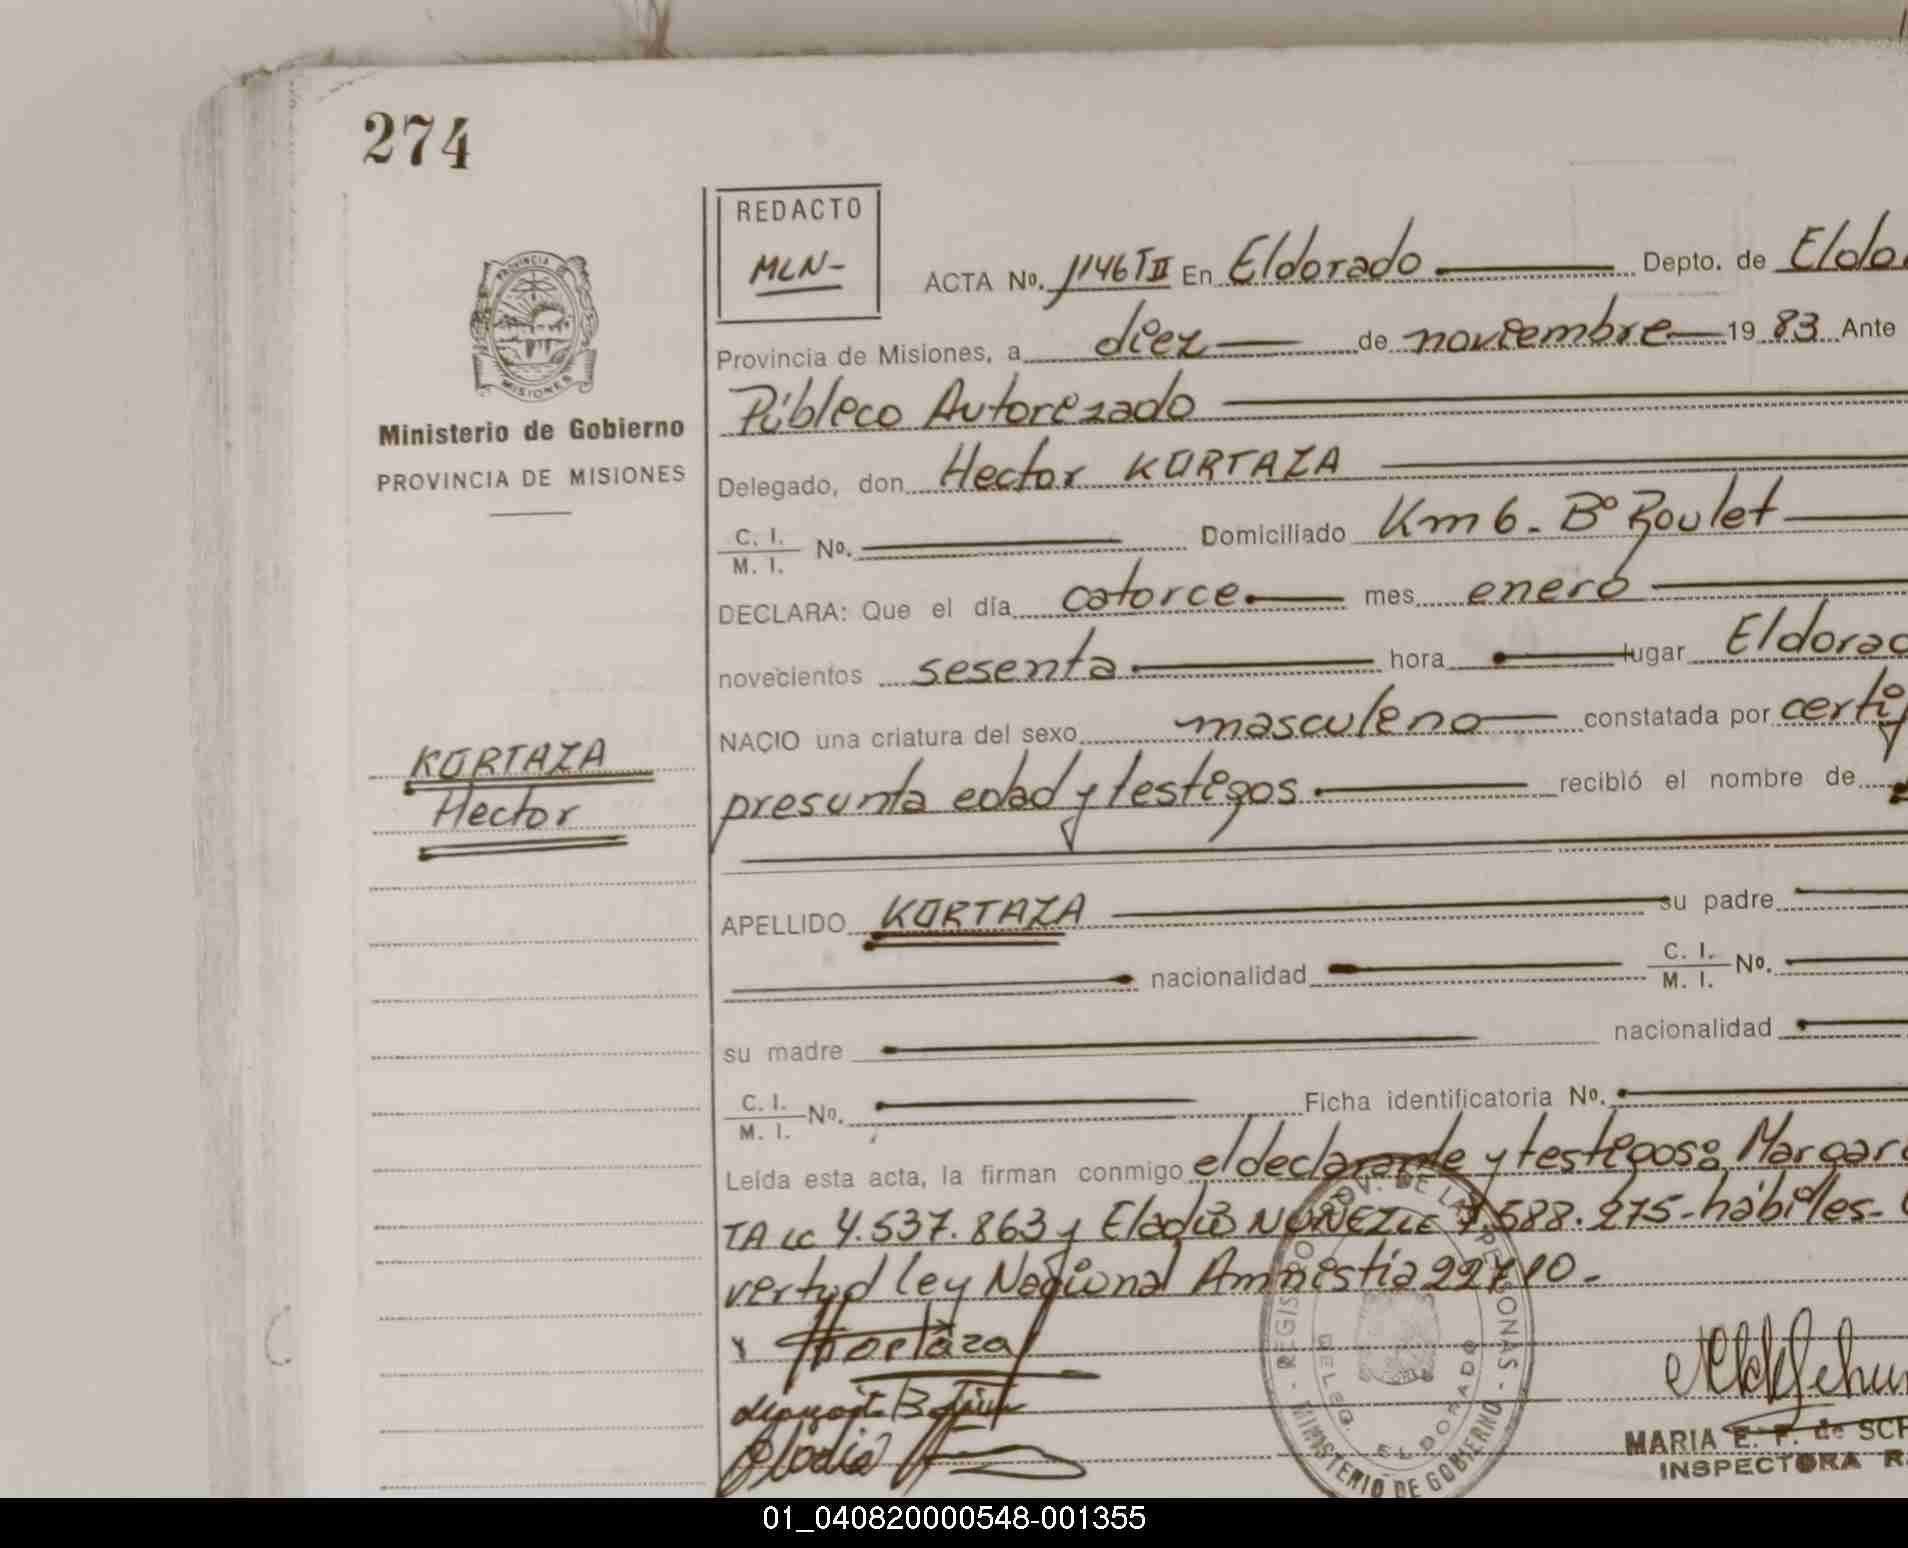 274
REDACTO
MLN-
PROVINCIA DE
MISIONES
Ministerio de Gobierno
PROVINCIA DE MISIONES
ACTA No. 1146 T II En Eldorado Depto. de Eldo
Provincia de Misiones, a diez de noviembre 19 83 Ante
Público Autorizado
Delegado, don Hector KORTAZA
C. I.
M. I. No. Domiciliado Km 6- Bº Roulet
DECLARA: Que el día catorce mes enero
novecientos sesenta hora lugar Eldorad
NACIO una criatura del sexo masculino constatada por certif
KORTAZA
Hector
presunta edad y testigos recibió el nombre de
APELLIDO KORTAZA su padre
nacionalidad C. I.
M. I. No.
su madre nacionalidad
C. I.
M. I. No. Ficha identificatoria No.
Leída esta acta, la firman conmigo el declarante y testigos: Margar
TA LC 4.537.863 y Eladio NUÑEZ LE 7.588.275- hábiles-
virtud ley Nacional Amnistia 22710.-
REGIS PROV. DE LAS PERSONAS
DELEG. ELDORADO
MINISTERIO DE GOBIERNO
MARIA E. F. de SCH
INSPECTORA R
01_040820000548-001355